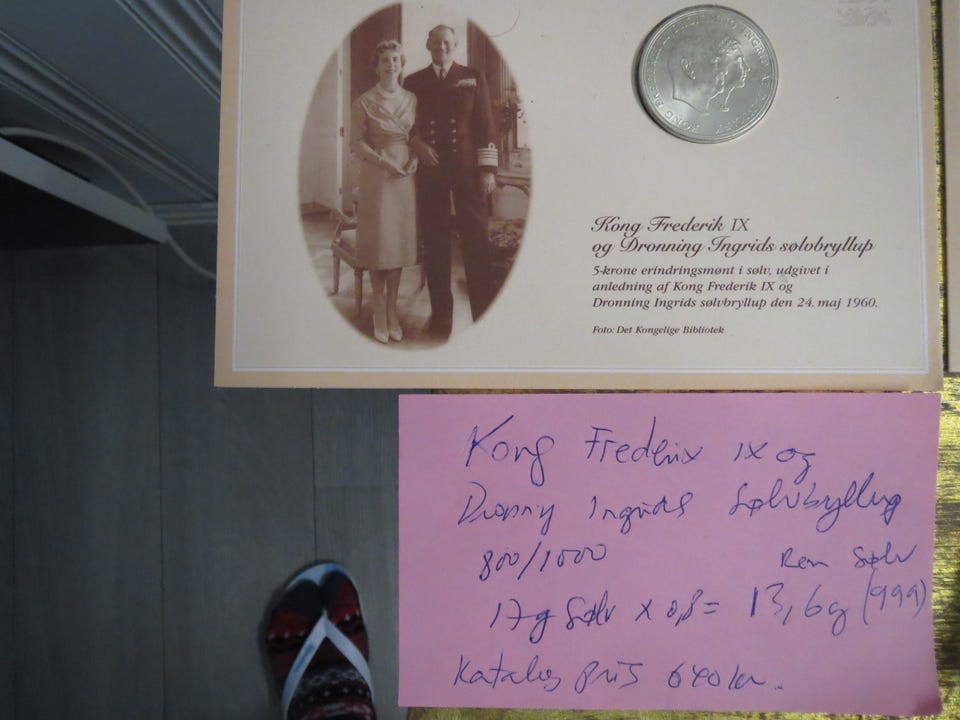 Kong Frederik IX
og Dronning Ingrids sølvbryllup
5-krone erindringsmønt i sølv, udgivet i
anledning af Kong Frederik IX og
Dronning Ingrids sølvbryllup den 24. maj 1960.
Foto: Det Kongelige Bibliotek
Kong Frederik IX og
Dronning Ingrids Sølvbryllup
800/1000 Ren Sølv
17g Sølv x 0,8 = 13,6g (999)
Katalog pris 640 kr.